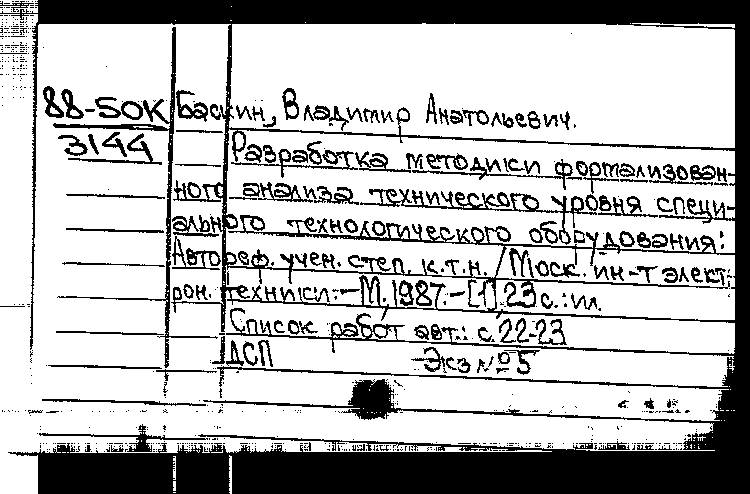 88-5ОК Баскин, Владимир Анатольевич.
3144 Разработка методики формализован-
ного анализа технического уровня специ-
ального технологического оборудования:
Автореф. учен. степ. к.т.н. / Моск. ин-т элект-
рон. техники. - М., 1987. - [1], 23 с.: ил.
Список работ авт.: с. 22-23
ДСП Экз № 5